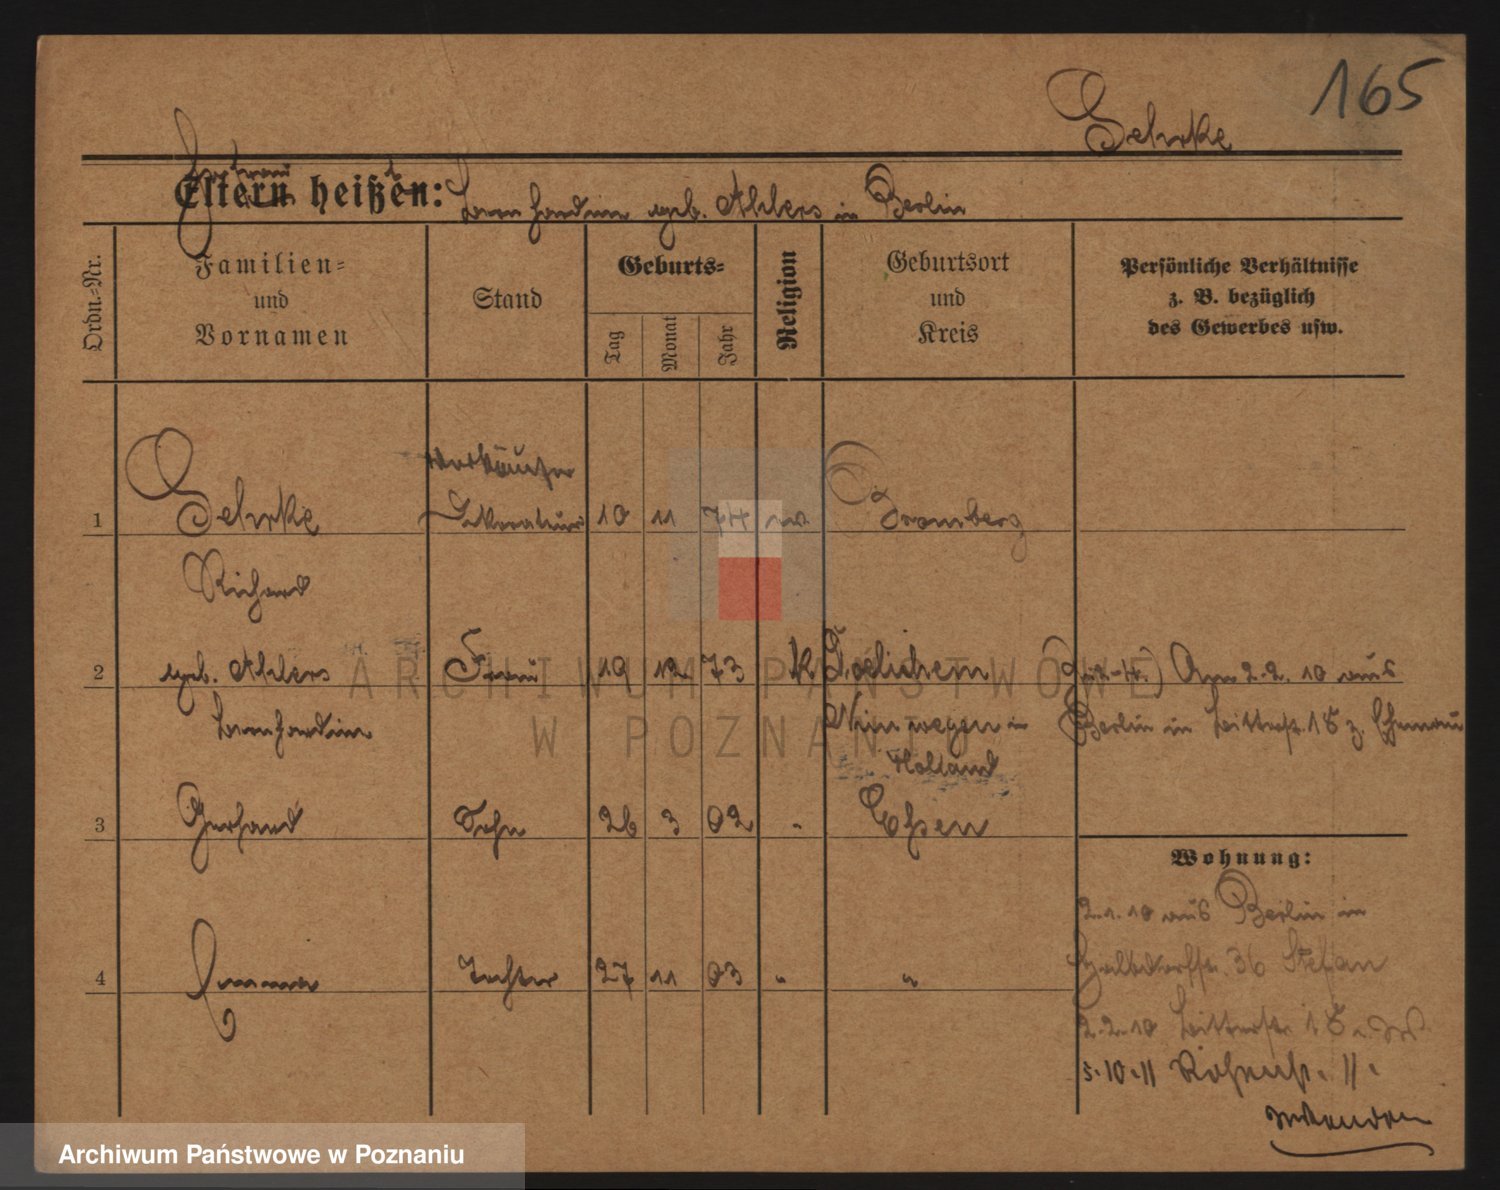 165
Gehrke
Eltern heißen:
Bernhardine geb. Ahlers in Berlin
Ordn.-Nr.
Familien-
und
Vornamen
Stand
Geburts-
Tag
Monat
Jahr
Religion
Geburtsort
und
Kreis
Persönliche Verhältnisse
z. B. bezüglich
des Gewerbes usw.
Verkäufer
1 Gehrke Dekorateur 10 11 74 Bromberg
Richard
2 geb. Ahlers Frau 19 12 73 k Am 2.2.10 aus
Bernhardine Nimwegen Berlin in 18 z. Ehemann
Holland
3 Gerhard Sohn 26 3 02 " Essen
Wohnung:
2.1.10 aus Berlin in
Halbdorfstr 36 Stefan
4 Emma Tochter 27 11 03 " "
2.2.10 18
5.10.11 11.
ARCHIWUM PAŃSTWOWE
W POZNANIU
Archiwum Państwowe w Poznaniu